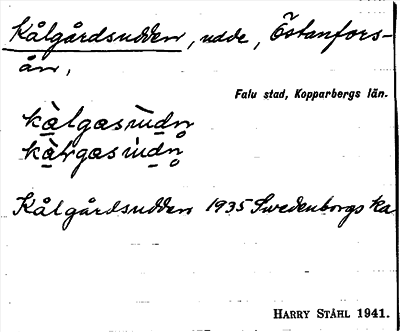 Kålgårdsudden, udde, Östanfors-
ån,
Falu stad, Kopparbergs län.
kàlgasùdn̥
Kålgårdsudden 1935 Swedenborgs ka
HARRY STÅHL 1941.